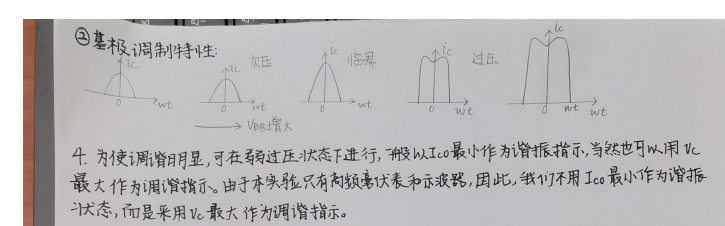 ②基极调制特性:
ic ic 欠压 ic 临界 ic 过压 ic
0 wt 0 wt 0 wt 0 wt 0 wt wt
VBB增大
4. 为使调谐明显,可在弱过压状态下进行,一般以Ico最小作为谐振指示,当然也可以用Vc
最大作为调谐指示。由于本实验只有高频毫伏表和示波器,因此,我们不用Ico最小作为谐振
状态,而是采用Vc最大作为调谐指示。